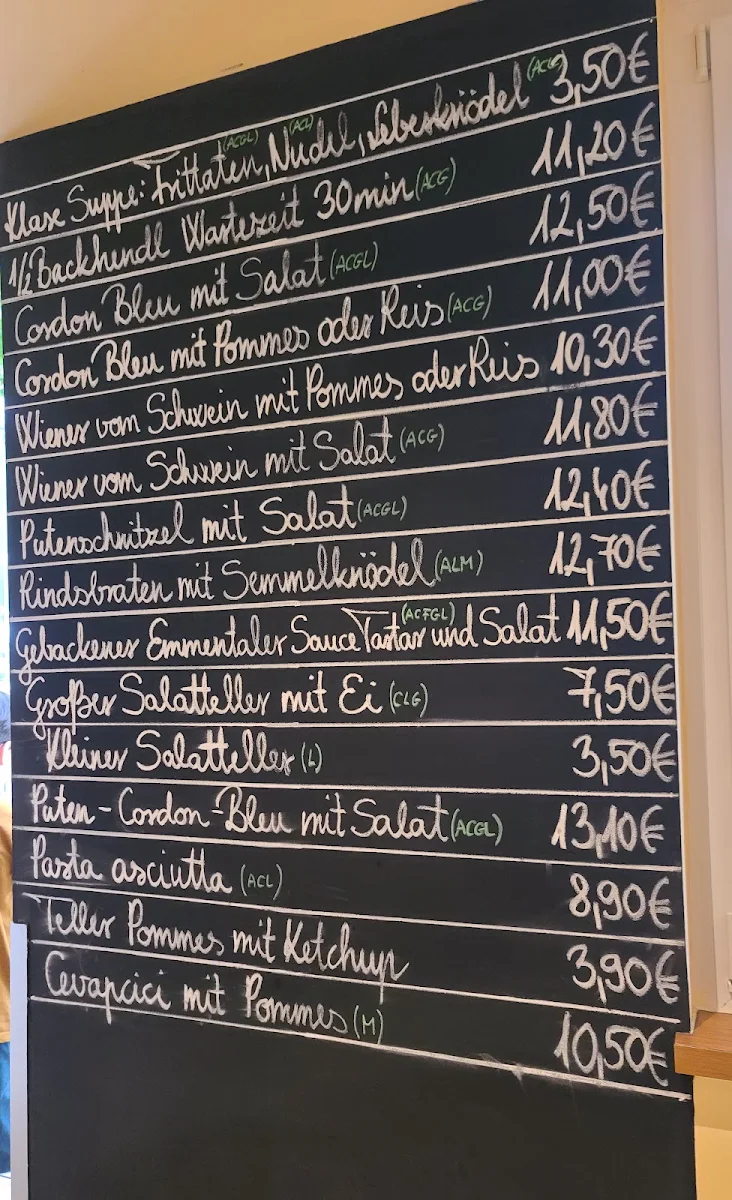 Klare Suppe: Frittaten (ACGL), Nudel (ACL), Leberknödel (ACG) 3,50€
1/2 Backhendl Wartezeit 30min (ACG) 11,20€
Cordon Bleu mit Salat (ACGL) 12,50€
Cordon Bleu mit Pommes oder Reis (ACG) 11,00€
Wiener vom Schwein mit Pommes oder Reis 10,30€
Wiener vom Schwein mit Salat (ACG) 11,80€
Putenschnitzel mit Salat (ACGL) 12,40€
Rindsbraten mit Semmelknödel (ALM) 12,70€
Gebackener Emmentaler Sauce Tartar (ACFGL) und Salat 11,50€
Großer Salatteller mit Ei (CLG) 7,50€
Kleiner Salatteller (L) 3,50€
Puten-Cordon-Bleu mit Salat (ACGL) 13,10€
Pasta asciutta (ACL) 8,90€
Teller Pommes mit Ketchup 3,90€
Cevapcici mit Pommes (M) 10,50€